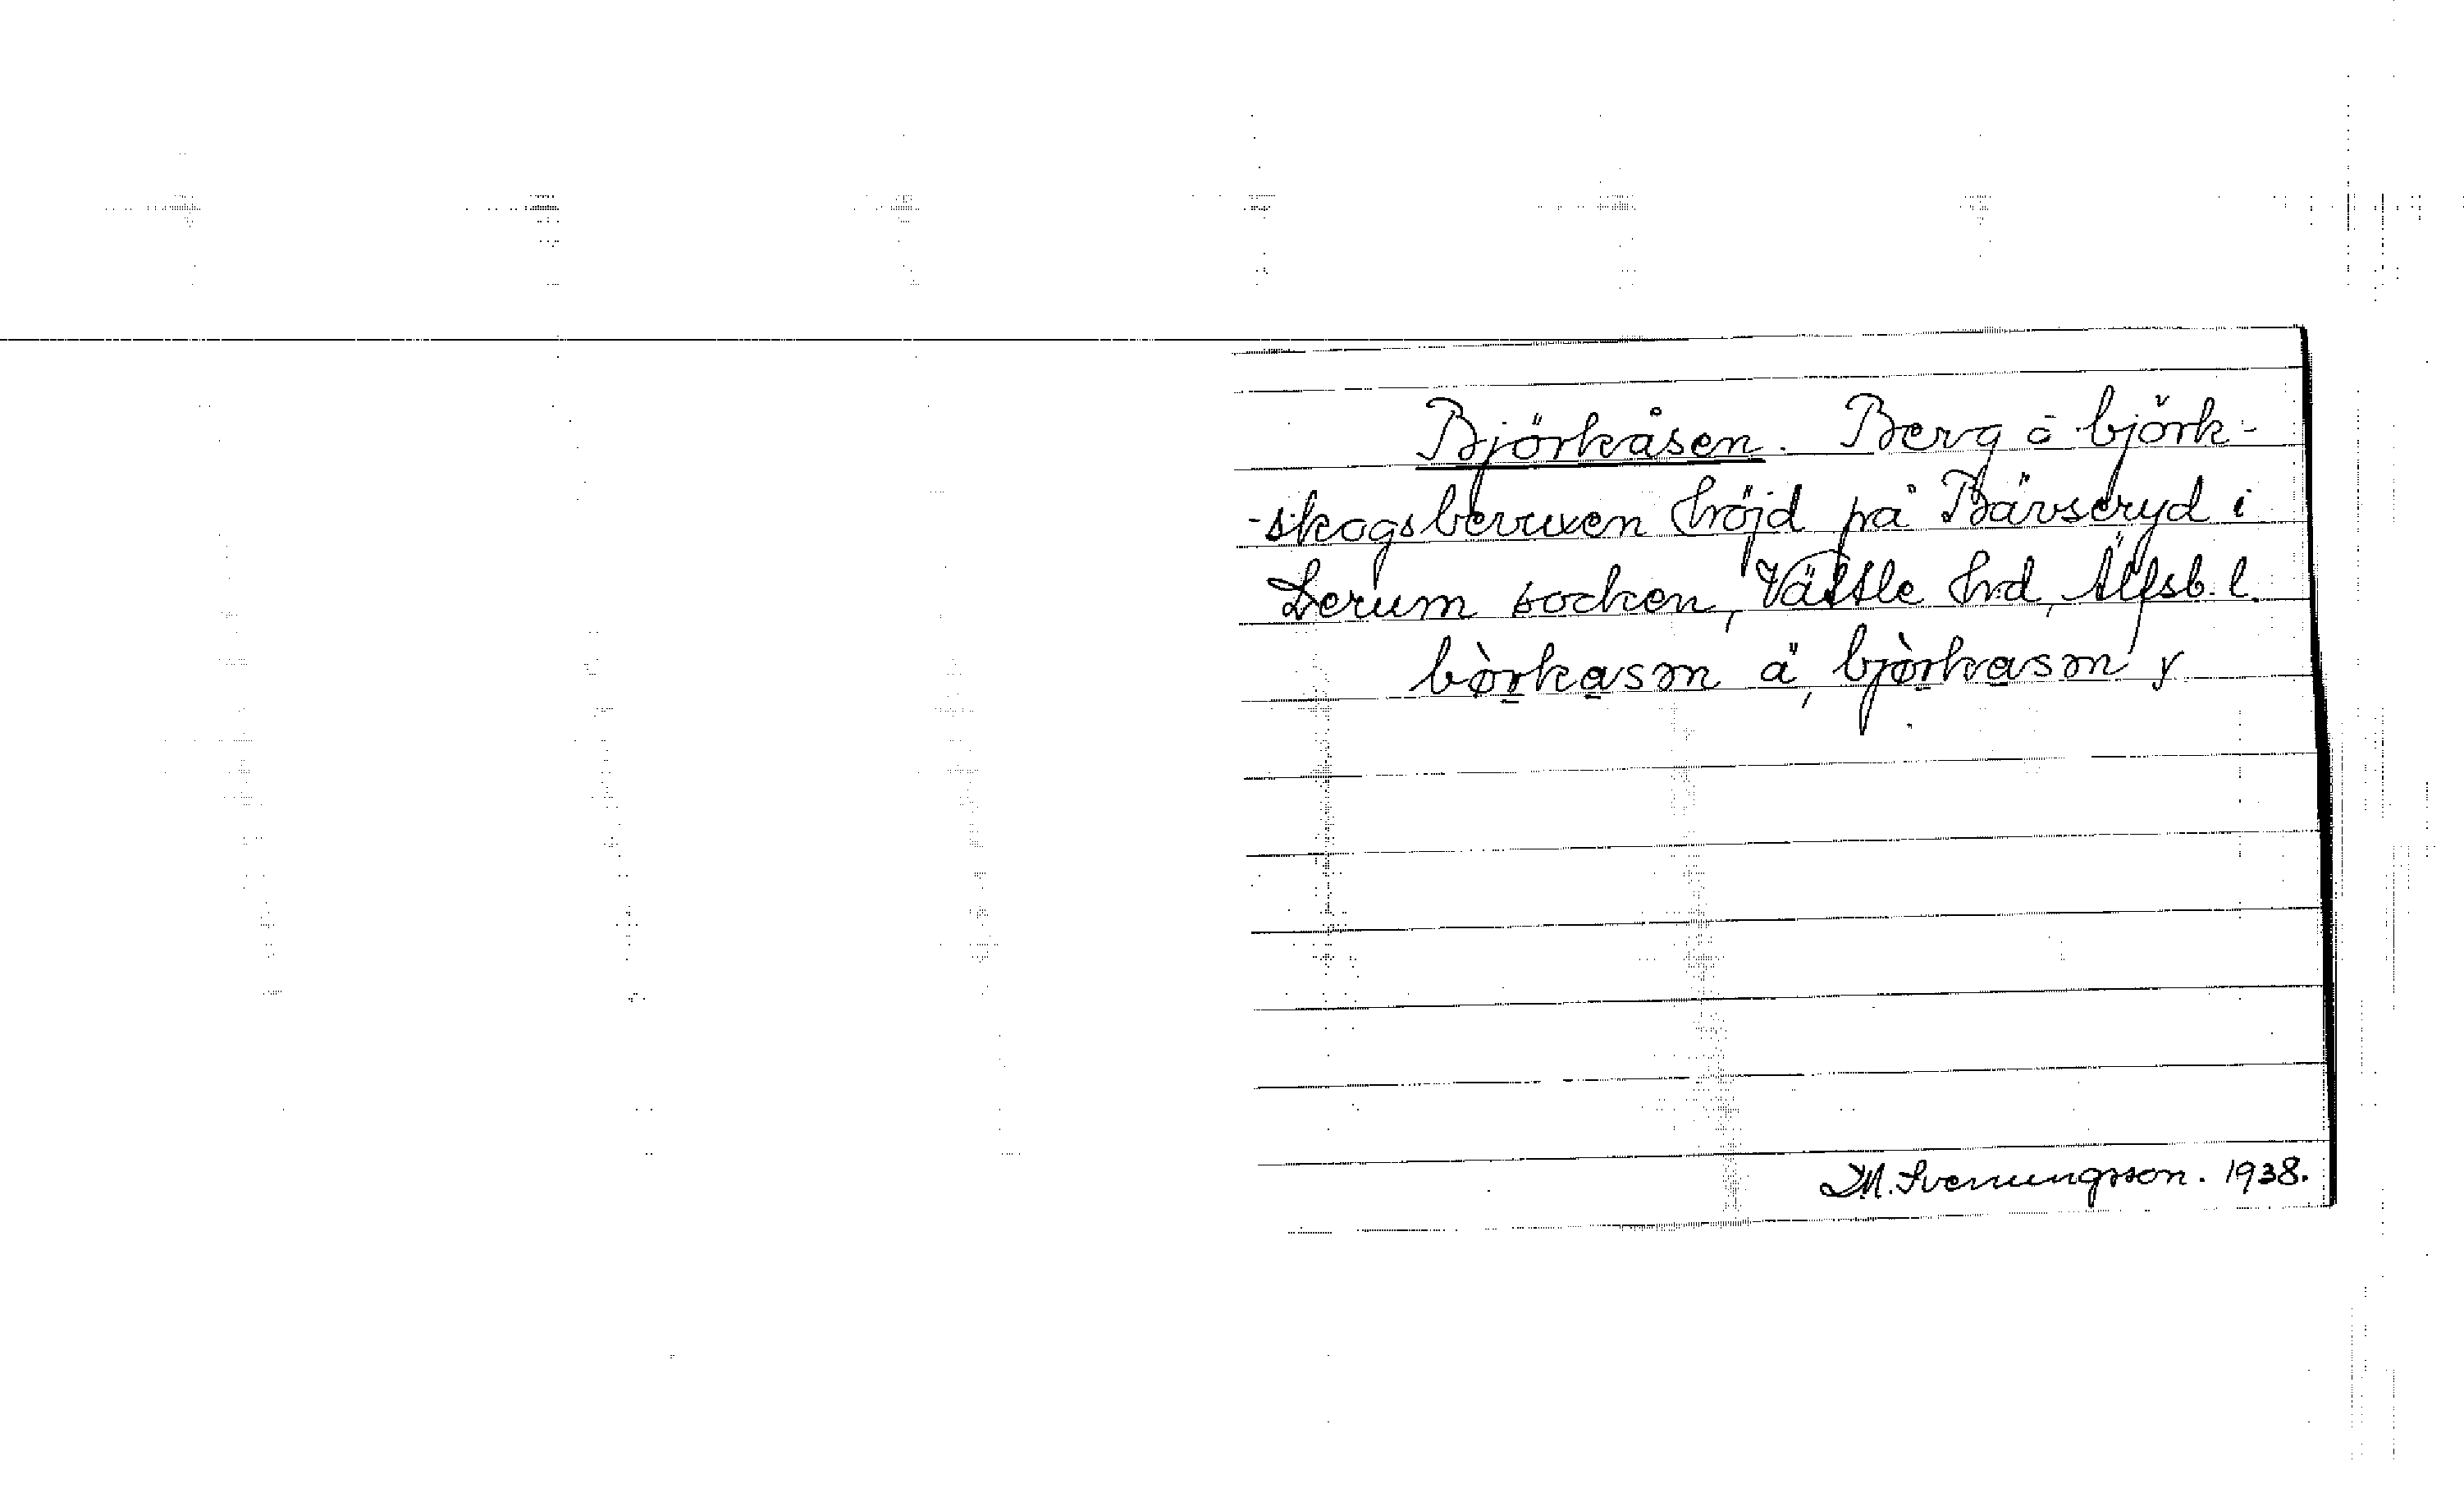 Björkåsen. Berg o björk-
-skogsbevuxen höjd på Bävseryd i
Lerum socken, Vättle hd, Älfsb. l.
bòrkasm ä, bjòrkasm y
D.M. Svenungsson. 1938.